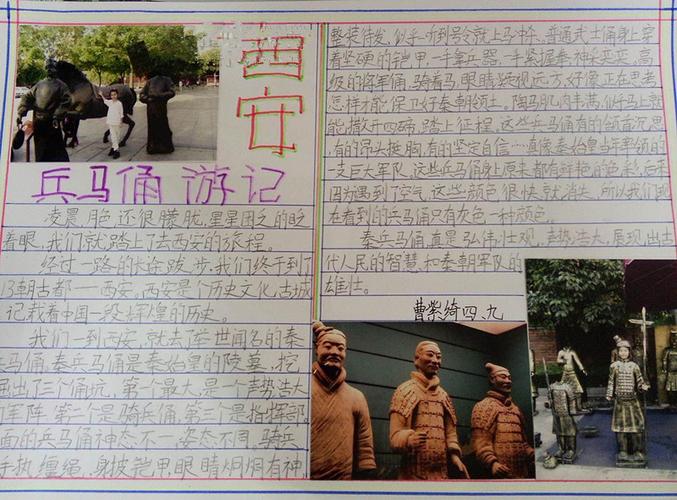 西安
兵马俑游记
凌晨,月色还很朦胧,星星困乏的眨
着眼,我们就踏上了去西安的旅程。
经过一路的长途跋步,我们终于到了
13朝古都——西安。西安是个历史文化古城
记载着中国一段辉煌的历史。
我们一到西安,就去了举世闻名的秦
兵马俑。秦兵马俑是秦始皇的陵墓,挖
掘出了三个俑坑,第一个最大,是一个声势浩大
的军阵,第二个是骑兵俑,第三个是指挥部。
面的兵马俑神态不一,姿态不同,骑兵
手执缰绳,身披铠甲,眼睛炯炯有神,
整装待发,似乎听到号令就上马冲杀。普通武士俑身上穿
着坚硬的铠甲,一手拿兵器,一手紧握拳,神采奕奕。高
级的将军俑,骑着马,眼睛凝视远方,好像正在思考
怎样才能保卫好秦朝领土。陶马肌肉丰满,似乎马上就
能撒开四蹄,踏上征程。这些兵马俑有的领首沉思
,有的昂头挺胸,有的坚定自信……真像秦始皇当年率领的
一支巨大军队。这些兵马俑身上原来都有鲜艳的色彩,后来
因为遇到了空气,这些颜色很快就消失,所以我们现
在看到的兵马俑只有灰色一种颜色。
秦兵马俑,真是弘伟壮观,声势浩大,展现出古
代人民的智慧,和秦朝军队的
雄壮。
曹紫绮四、九